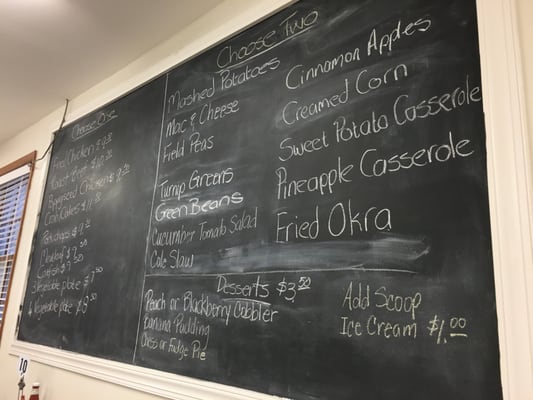 Choose One
Fried Chicken $
Roast Beef $
Poppyseed Chicken $
Crab Cakes $
Pork chops $
Meatloaf $
Catfish $
3 Vegetable plate $7.50
4 Vegetable plate $8.50
Choose Two
Mashed Potatoes
Mac & Cheese
Field Peas
Turnip Greens
Green Beans
Cucumber Tomato Salad
Cole Slaw
Cinnamon Apples
Creamed Corn
Sweet Potato Casserole
Pineapple Casserole
Fried Okra
Desserts $3.50
Peach or Blackberry Cobbler
Banana Pudding
Chess or Fudge Pie
Add Scoop
Ice Cream $1.00
10